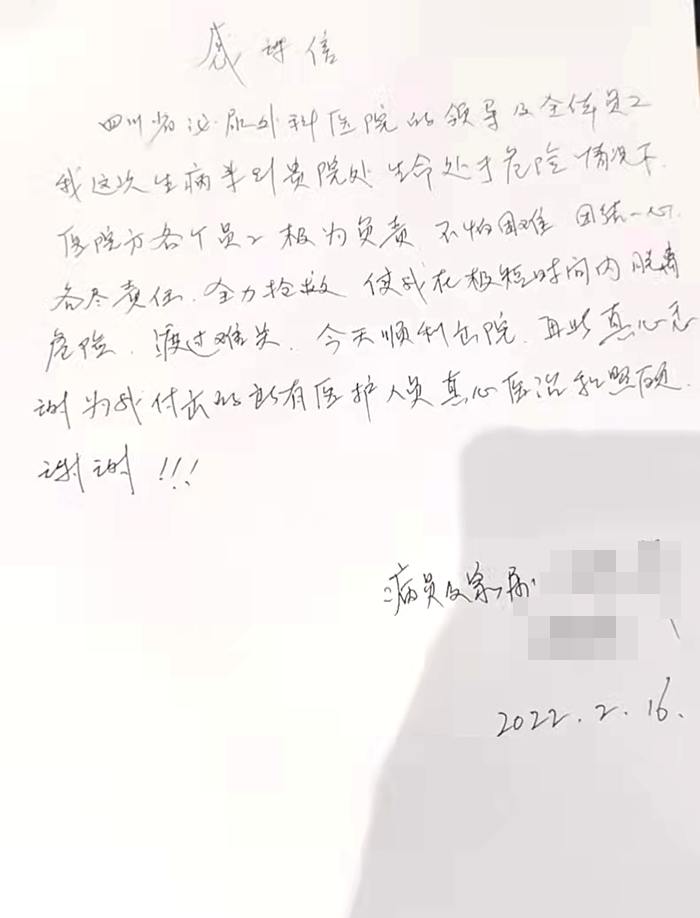 感谢信
四川省泌尿外科医院的领导及全体员工
我这次生病来到贵院处 生命处于危险情况下.
医院方各个员工极为负责 不怕困难 团结一心.
各尽责任. 全力抢救 使我在极短时间内脱离
危险. 渡过难关. 今天顺利出院. 再此真心感
谢为我付出的所有医护人员真心医治和照顾.
谢谢!!!
病员及家属:
2022.2.16.